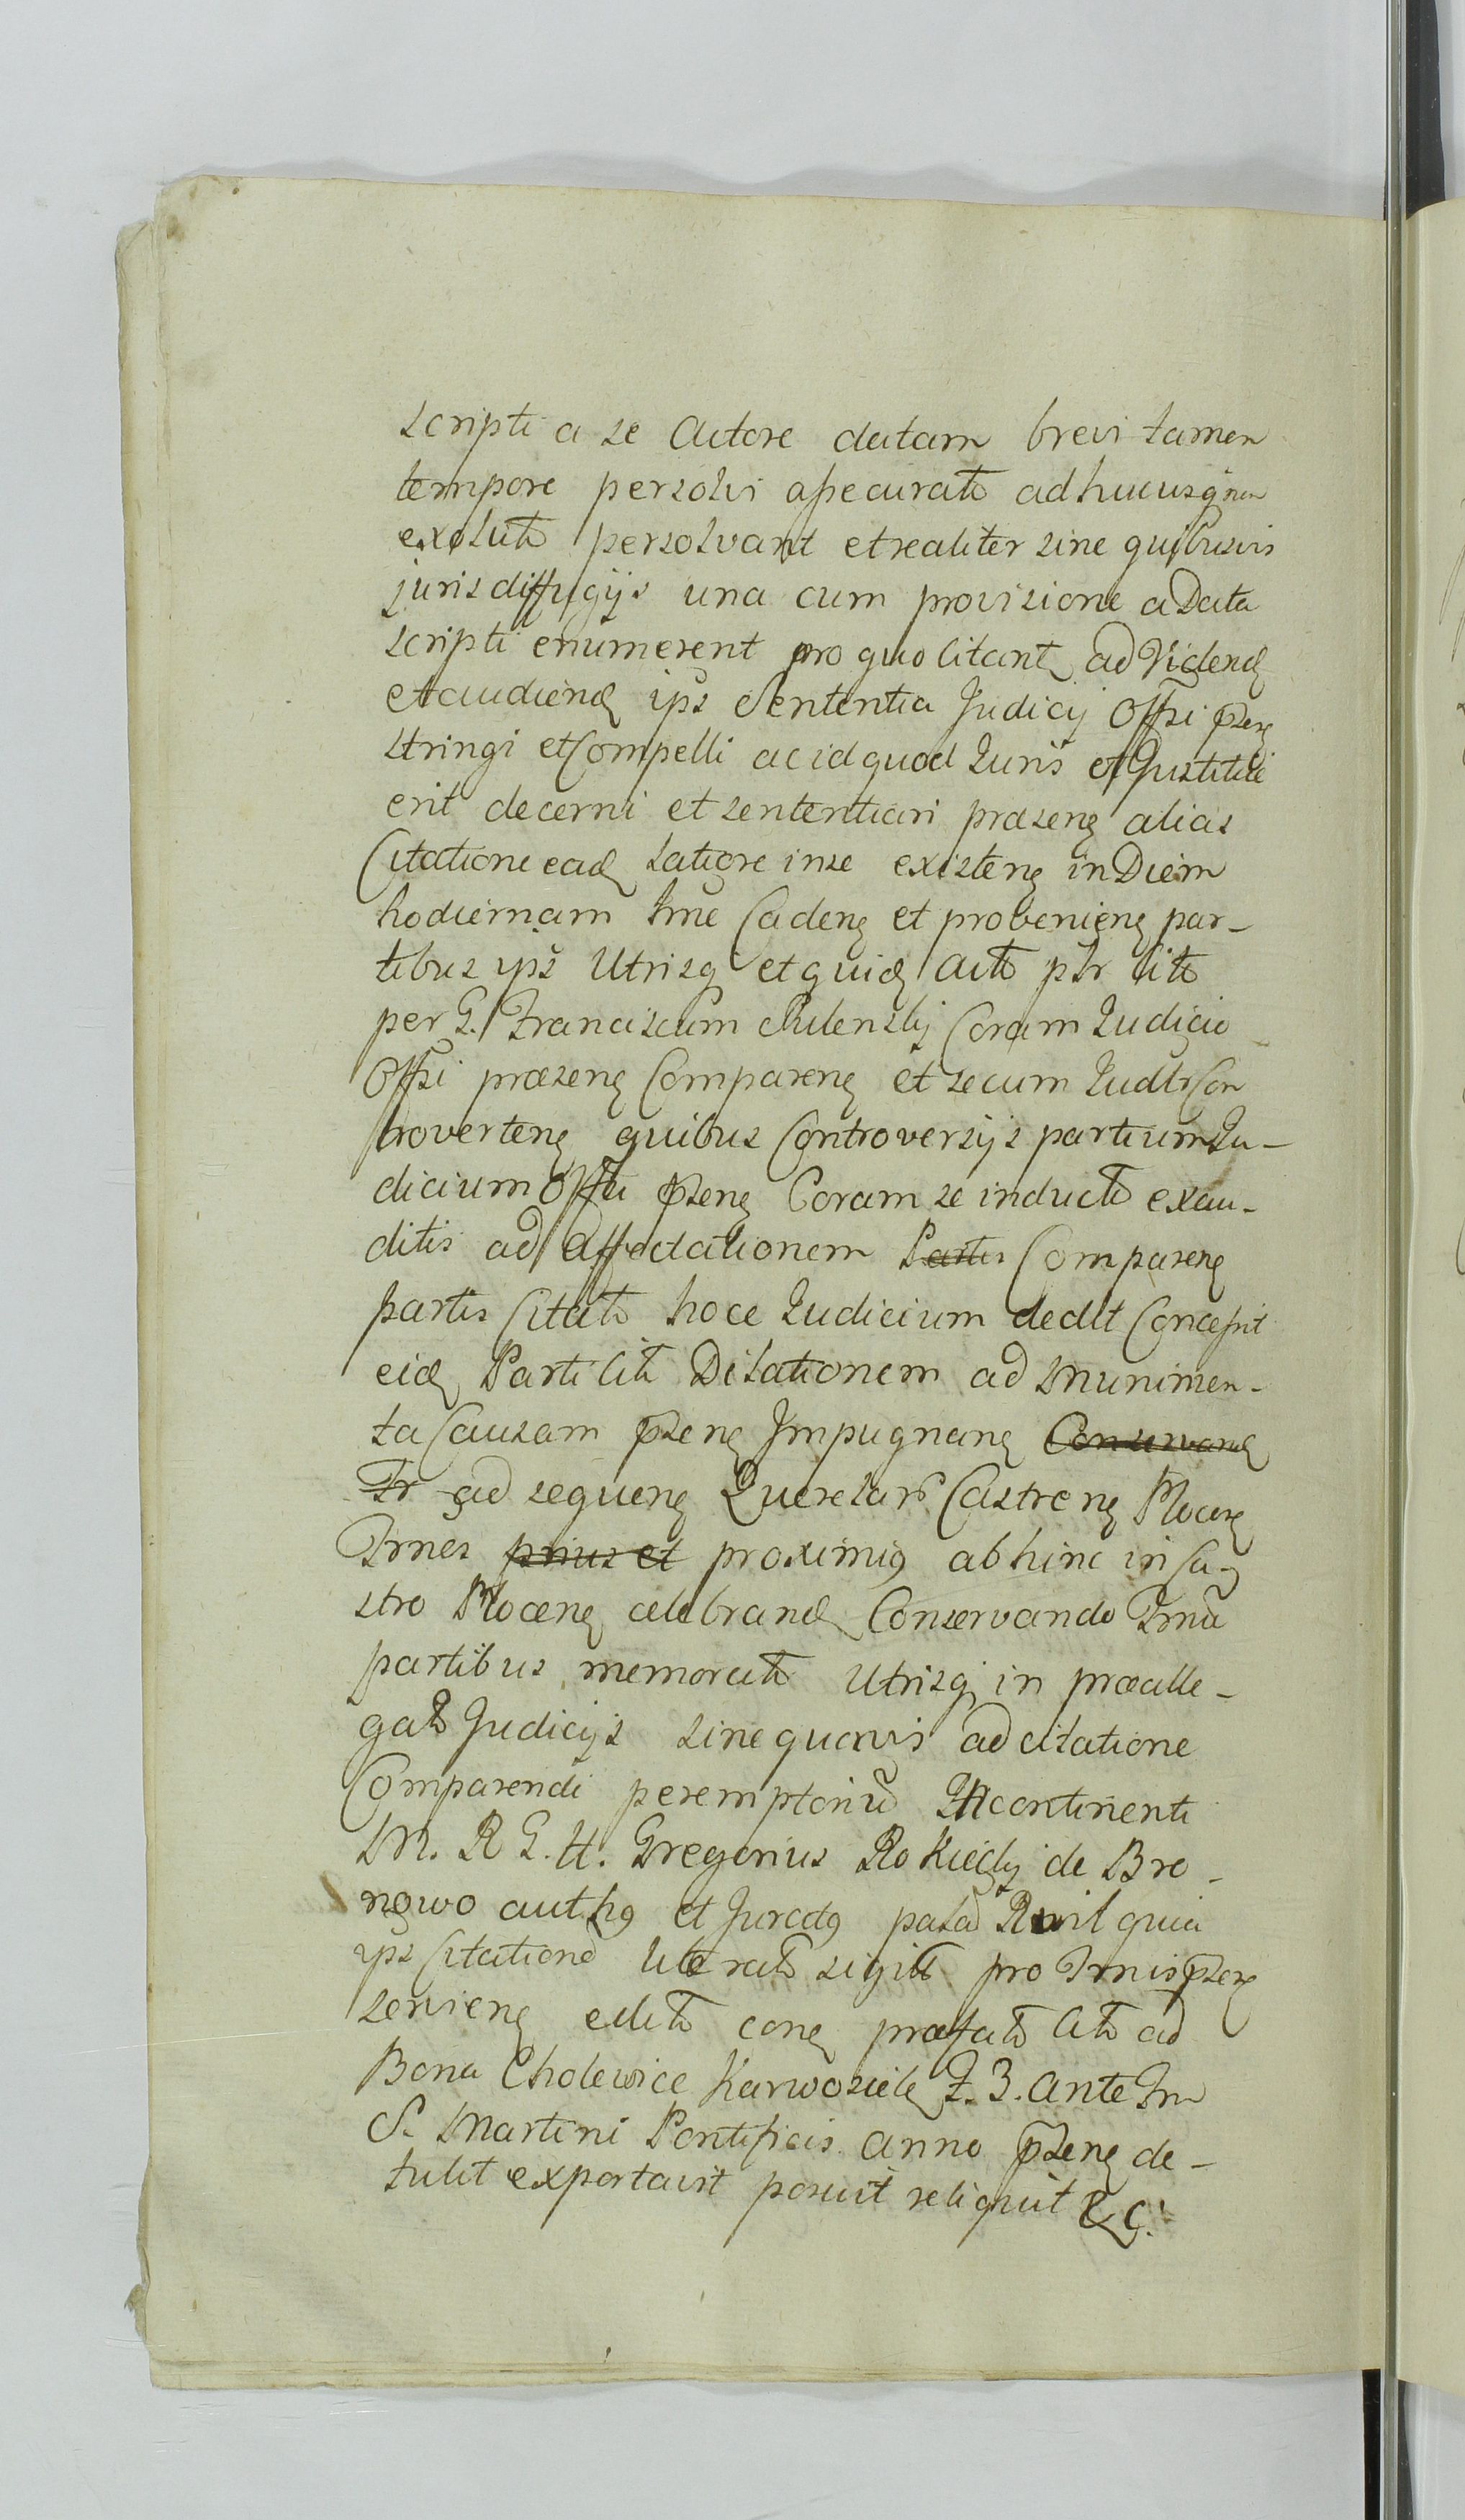 scripti a se Actore datam brevi tamen
tempore persolvi assecurato adhucusq non
exoluto persolvant et realiter sine quibusvis
juris diffugijs una cum provisione a Data
scripti enumerent pro quo citant ad Vidend
et audiend ips Sententia Judicij Offi psen
stringi et Compelli ac id quod Juris et Justitiae
erit decerni et sententiari praesen alias
Citatione ead latiore in se existen in Diem
hodiernam Tme Caden et provenien par-
tibus ips Utrisq et quid Acto ptr Cito
per G. Franciscum Rulenskj Coram Judicio
Offi praesen Comparen et secum Judtr Con
troverten quibus Controversijs partium Ju-
dicium Offi psen Coram se inducto exau-
ditis ad Affectationem Partis Comparen
partis Citato hoce Judicium dedit Concessit
eid Parti Cit Dilationem ad Munimen-
ta Causam psen Impugnan Conservand
Tr ad sequen Querelar Castren Plocen
Trnes prius et proximiq abhinc in Ca-
stro Plocen celebrand Conservando Trnu
partibus memorato Utrisq in praealle-
gato Judicijs sine quavis adcitatione
Comparendi peremptoriu Incontinenti
M. R G. H. Gregorius Rokickj de Bro-
nowo authq et Juratq pala Rwil quia
ips Citatione literato sigill pro Trnis psen
servien edito con praefato Cit ad
Bona Cholewice Karwosieki F. 3. ante Trn
S. Martini Pontificis Anno psen de-
tulit exportavit posuit reliquit &c.